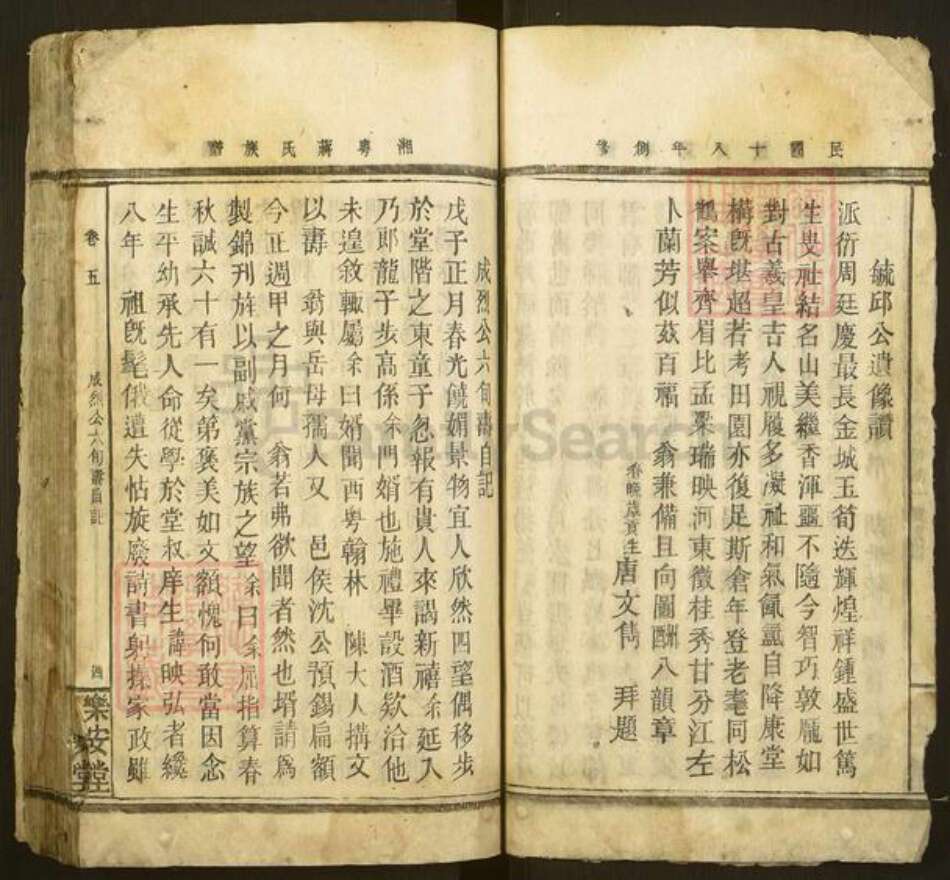 民國十八年創修
毓邱公遺像讚
派衍周廷慶最長金城玉筍迭輝煌祥鍾盛世篤
生叟社結名山美繼香渾噩不隨今智巧敦龐如
對古羲皇吉人視履多凝祉和氣氤氳自降康堂
構旣堪超若考田園亦復足斯倉年登老耄同松
鶴案舉齊眉比孟梁瑞映河東徵桂秀甘分江左
卜蘭芳似茲百福 翁兼備且向圖酬八韻章
眷晚歲貢生唐文雋 拜題
湘粵蔣氏族譜
成烈公六旬壽自記
戊子正月春光饒媚景物宜人欣然四望偶移步
於堂階之東童子忽報有貴人來謁新禧余延入
乃郎龍子步高係余門婿也施禮畢設酒欵洽他
未遑敘輒屬余曰婿聞西粤翰林 陳大人搆文
以壽 翁與岳母孺人又 邑侯沈公預錫扁額
今正週甲之月何 翁若弗欲聞者然也壻請爲
製錦刊旌以副戚黨宗族之望余曰余屈指算春
秋誠六十有一矣第褒美如文額愧何敢當因念
生平幼承先人命從學於堂叔庠生諱映弘者纔
八年 祖旣髦俄遭失怙旋廢詩書躬操家政雖
卷五 成烈公六旬壽自記
樂安堂
FamilySearch